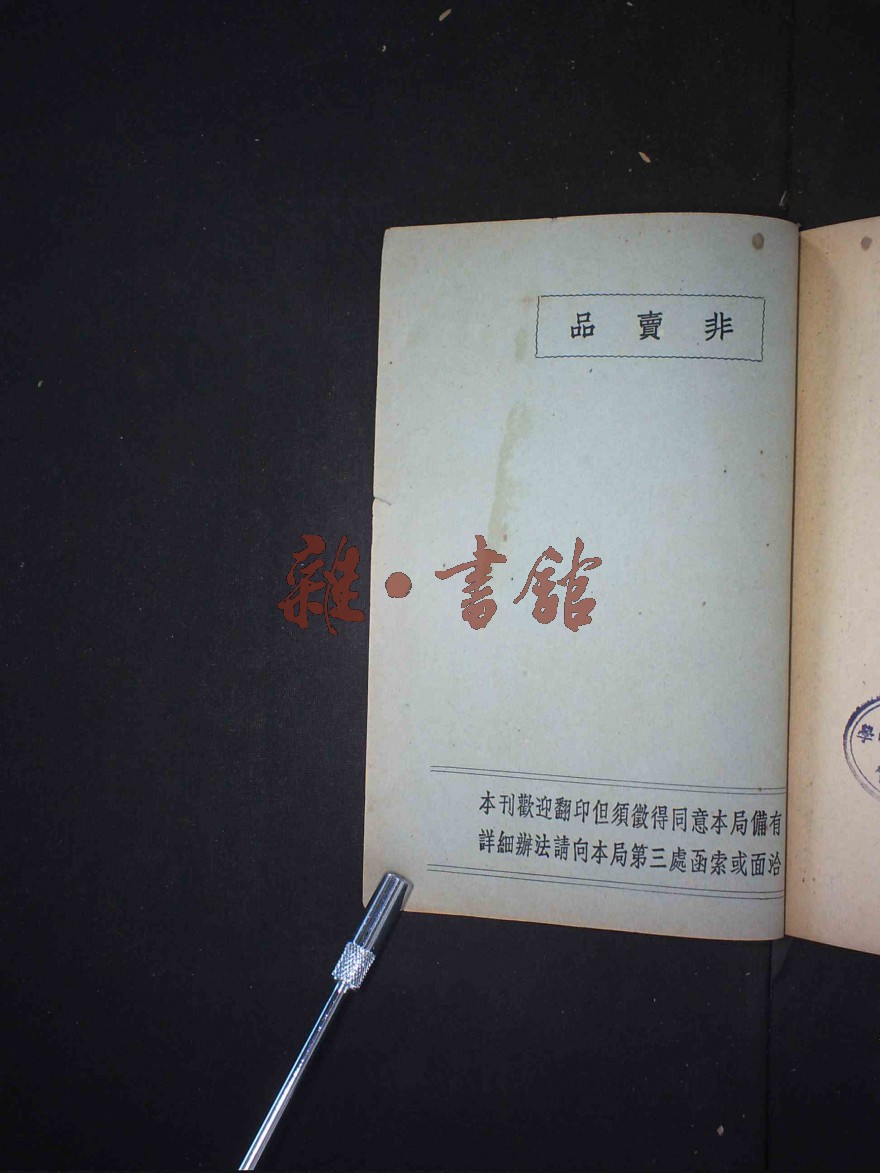 非賣品
雜·書館
本刊歡迎翻印但須徵得同意本局備有
詳細辦法請向本局第三處函索或面洽
學